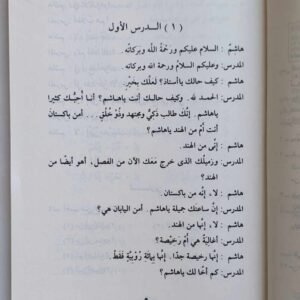 (١) الـدرس الأول
هاشم : السلام عليكم ورحمة الله وبركاته.
المدرس: وعليكم السلام ورحمة الله وبركاته
هاشم : كيف حالك يا أستاذ؟ لعلك بخير.
المدرس: الحمد لله. وكيف حالك أنت ياهاشم؟ أنا أحبك كثيرا
ياهاشم. إنك طالب ذكي ومجتهد وذو خلق. أمن باكستان
أنت أم من الهند ياهاشم؟
هاشم : إني من الهند.
المدرس: وزميلك الذي خرج معك الآن من الفصل، أهو أيضا من
الهند؟
هاشم : لا، إنه من باكستان.
المدرس: إن ساعتك جميلة ياهاشم. أمن اليابان هي؟
هاشم : لا، إنها من الهند.
المدرس: أغالية هي أم رخيصة؟
هاشم : إنها رخيصة جدا. إنها بمائة روبية فقط.
المدرس: كم أخا لك ياهاشم؟